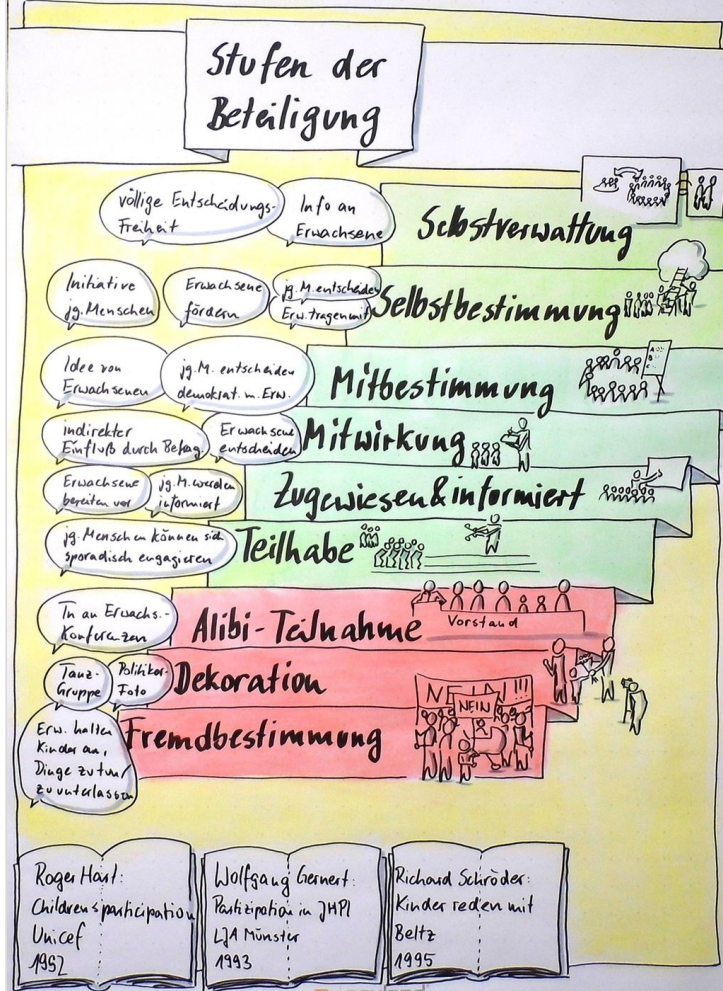 Stufen der
Beteiligung
völlige Entscheidungs-
Freiheit
Info an
Erwachsene
Selbstverwaltung
Initiative
jg. Menschen
Erwachsene
fördern
jg. M. entscheiden
Erw. tragen mit
Selbstbestimmung
Idee von
Erwachsenen
jg. M. entscheiden
demokrat. m. Erw.
Mitbestimmung
indirekter
Einfluß durch Befrag.
Erwachsene
entscheiden
Mitwirkung
Erwachsene
bereiten vor
jg. M. werden
informiert
Zugewiesen & informiert
jg. Menschen können sich
sporadisch engagieren
Teilhabe
Tn an Erwachs.-
Konferenzen
Alibi-Teilnahme
Vorstand
Tanz-
Gruppe
Politiker-
Foto
Dekoration
NEIN
Erw. halten
Kinder an,
Dinge zu tun/
zu unterlassen
Fremdbestimmung
Roger Hart:
Children's participation
Unicef
1992
Wolfgang Gernert:
Partizipation in JHPl
LJA Münster
1993
Richard Schröder:
Kinder reden mit
Beltz
1995